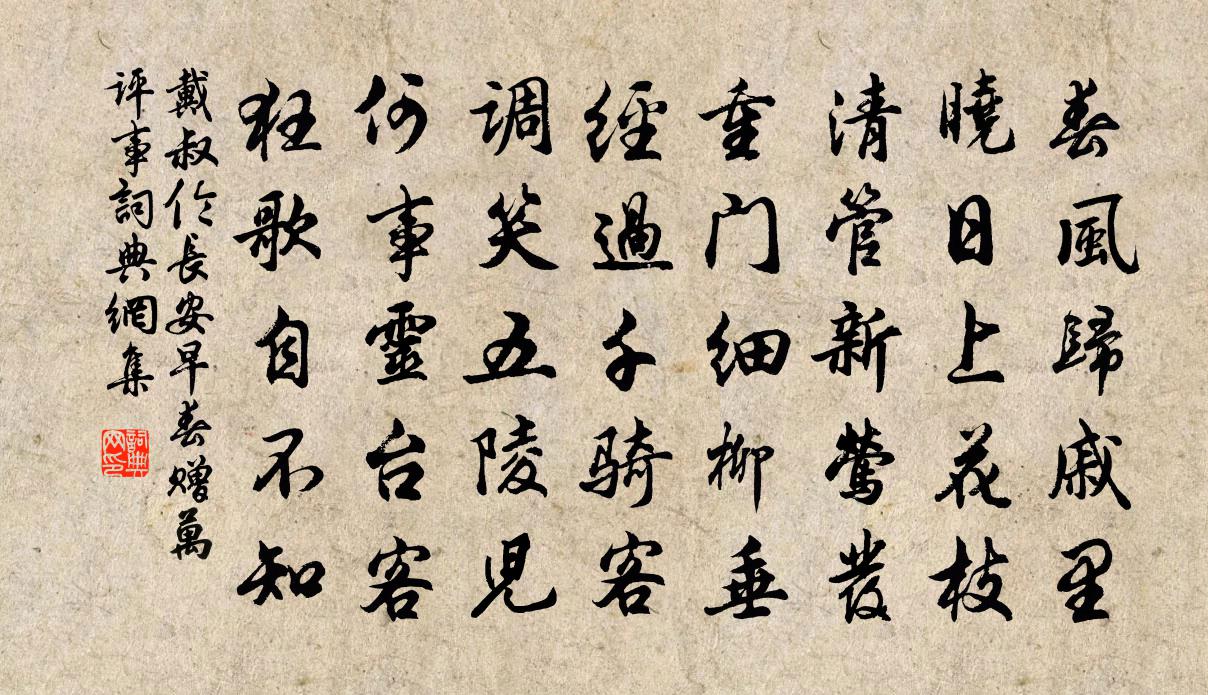 春風歸戚里
曉日上花枝
清管新鶯發
重门細柳垂
經過千骑客
调笑五陵児
何事靈台客
狂歌自不知
戴叔伦長安早春赠萬
评事詞典網集
詞典
网印